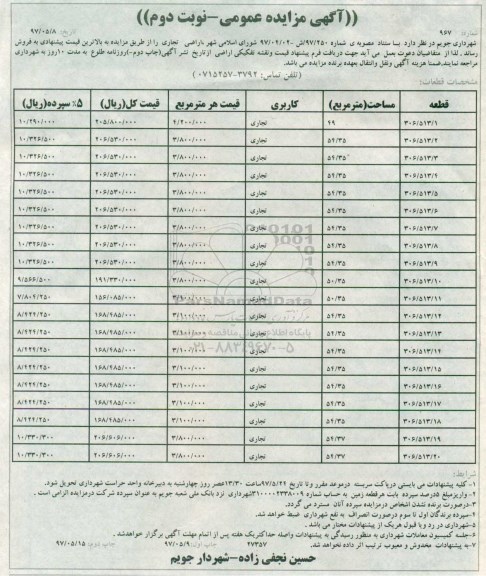 ((آگهی مزایده عمومی–نوبت دوم))
شماره: ۹۶۷
تاریخ: ۹۷/۰۵/۸
شهرداری جویم در نظر دارد با ستناد مصوبه ی شماره ۹۷/۲۵۰/ش ۹۷/۰۲/۰۲ شورای اسلامی شهر ،اراضی تجاری را از طریق مزایده به بالاترین قیمت پیشنهادی به فروش
رساند ، لذا از متقاضیان دعوت بعمل می آید جهت دریافت فرم پیشنهاد قیمت ونقشه تفکیکی اراضی ازتاریخ نشر آگهی(چاپ دوم-)روزنامه طلوع به مدت ۱۰روز به شهرداری
مراجعه نمایند.ضمنا هزینه آگهی ونقل وانتقال بعهده برنده مزایده می باشد.
(تلفن تماس: ۳۷۹۲-۰۷۱۵۲۵۷)
مشخصات قطعات:
قطعه مساحت(مترمربع) کاربری قیمت هر مترمربع قیمت کل(ریال) ۵٪ سپرده(ریال)
۳۰۶/۵۱۳/۱ ۴۹ تجاری ۴/۲۰۰/۰۰۰ ۲۰۵/۸۰۰/۰۰۰ ۱۰/۲۹۰/۰۰۰
۳۰۶/۵۱۳/۲ ۵۴/۳۵ تجاری ۳/۸۰۰/۰۰۰ ۲۰۶/۵۳۰/۰۰۰ ۱۰/۳۲۶/۵۰۰
۳۰۶/۵۱۳/۳ ۵۴/۳۵ تجاری ۳/۸۰۰/۰۰۰ ۲۰۶/۵۳۰/۰۰۰ ۱۰/۳۲۶/۵۰۰
۳۰۶/۵۱۳/۴ ۵۴/۳۵ تجاری ۳/۸۰۰/۰۰۰ ۲۰۶/۵۳۰/۰۰۰ ۱۰/۳۲۶/۵۰۰
۳۰۶/۵۱۳/۵ ۵۴/۳۵ تجاری ۳/۸۰۰/۰۰۰ ۲۰۶/۵۳۰/۰۰۰ ۱۰/۳۲۶/۵۰۰
۳۰۶/۵۱۳/۶ ۵۴/۳۵ تجاری ۳/۸۰۰/۰۰۰ ۲۰۶/۵۳۰/۰۰۰ ۱۰/۳۲۶/۵۰۰
۳۰۶/۵۱۳/۷ ۵۴/۳۵ تجاری ۳/۸۰۰/۰۰۰ ۲۰۶/۵۳۰/۰۰۰ ۱۰/۳۲۶/۵۰۰
۳۰۶/۵۱۳/۸ ۵۴/۳۵ تجاری ۳/۸۰۰/۰۰۰ ۲۰۶/۵۳۰/۰۰۰ ۱۰/۳۲۶/۵۰۰
۳۰۶/۵۱۳/۹ ۵۴/۳۵ تجاری ۳/۸۰۰/۰۰۰ ۲۰۶/۵۳۰/۰۰۰ ۱۰/۳۲۶/۵۰۰
۳۰۶/۵۱۳/۱۰ ۵۰/۳۵ تجاری ۳/۸۰۰/۰۰۰ ۱۹۱/۳۳۰/۰۰۰ ۹/۵۶۶/۵۰۰
۳۰۶/۵۱۳/۱۱ ۵۰/۳۵ تجاری ۳/۱۰۰/۰۰۰ ۱۵۶/۰۸۵/۰۰۰ ۷/۸۰۴/۲۵۰
۳۰۶/۵۱۳/۱۲ ۵۴/۳۵ تجاری ۳/۱۰۰/۰۰۰ ۱۶۸/۴۸۵/۰۰۰ ۸/۴۲۴/۲۵۰
۳۰۶/۵۱۳/۱۳ ۵۴/۳۵ تجاری ۳/۱۰۰/۰۰۰ ۱۶۸/۴۸۵/۰۰۰ ۸/۴۲۴/۲۵۰
۳۰۶/۵۱۳/۱۴ ۵۴/۳۵ تجاری ۳/۱۰۰/۰۰۰ ۱۶۸/۴۸۵/۰۰۰ ۸/۴۲۴/۲۵۰
۳۰۶/۵۱۳/۱۵ ۵۴/۳۵ تجاری ۳/۱۰۰/۰۰۰ ۱۶۸/۴۸۵/۰۰۰ ۸/۴۲۴/۲۵۰
۳۰۶/۵۱۳/۱۶ ۵۴/۳۵ تجاری ۳/۱۰۰/۰۰۰ ۱۶۸/۴۸۵/۰۰۰ ۸/۴۲۴/۲۵۰
۳۰۶/۵۱۳/۱۷ ۵۴/۳۵ تجاری ۳/۱۰۰/۰۰۰ ۱۶۸/۴۸۵/۰۰۰ ۸/۴۲۴/۲۵۰
۳۰۶/۵۱۳/۱۸ ۵۴/۳۵ تجاری ۳/۱۰۰/۰۰۰ ۱۶۸/۴۸۵/۰۰۰ ۸/۴۲۴/۲۵۰
۳۰۶/۵۱۳/۱۹ ۵۴/۳۷ تجاری ۳/۸۰۰/۰۰۰ ۲۰۶/۶۰۶/۰۰۰ ۱۰/۳۳۰/۳۰۰
۳۰۶/۵۱۳/۲۰ ۵۴/۳۷ تجاری ۳/۸۰۰/۰۰۰ ۲۰۶/۶۰۶/۰۰۰ ۱۰/۳۳۰/۳۰۰
ParsNamadData
پایگاه اطلاع رسانی مناقصه
۰۲۱-۸۸۳۴۹۶۷۰-۵
شرایط:
۱-کلیه پیشنهادات می بایستی درپاکت سربسته درموعد مقرر وتا تاریخ ۹۷/۵/۲۴ساعت ۱۳/۳۰عصر روز چهارشنبه به دبیرخانه واحد حراست شهرداری تحویل شود.
۲- واریزمبلغ ۵درصد سپرده بابت هرقطعه زمین به حساب شماره ۳۱۰۰۰۰۲۳۳۸۰۰۹شهرداری نزد بانک ملی شعبه جویم به عنوان سپرده شرکت درمزایده الزامی است .
۳-درصورت برنده نشدن اشخاص درمزایده سپرده آنان مسترد می گردد.
۴-سپرده برندگان اول تا سوم درصورت انصراف به نفع شهرداری ضبط خواهد شد.
۵-شهرداری در رد و یا قبول هریک از پیشنهادات مختار می باشد .
۶-جلسه کمیسیون معاملات شهرداری به منظور رسیدگی به پیشنهادات واصله حداکثریک هفته پس از اتمام مهلت آگهی برگزار خواهدشد.
۷-به پیشنهادات مخدوش و معیوب ترتیب اثر داده نخواهد شد.
۲۷۳۵۷
چاپ اول:۹۷/۰۵/۹
چاپ دوم: ۹۷/۰۵/۱۵
حسین نجفی زاده-شهردار جویم